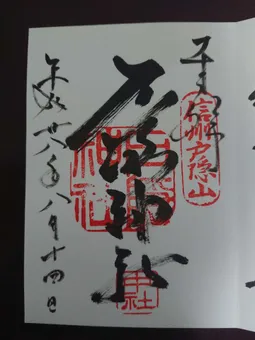 信州戸隠山
戸隠神社
戸隠
神社
中社
平成廿八年八月十四日